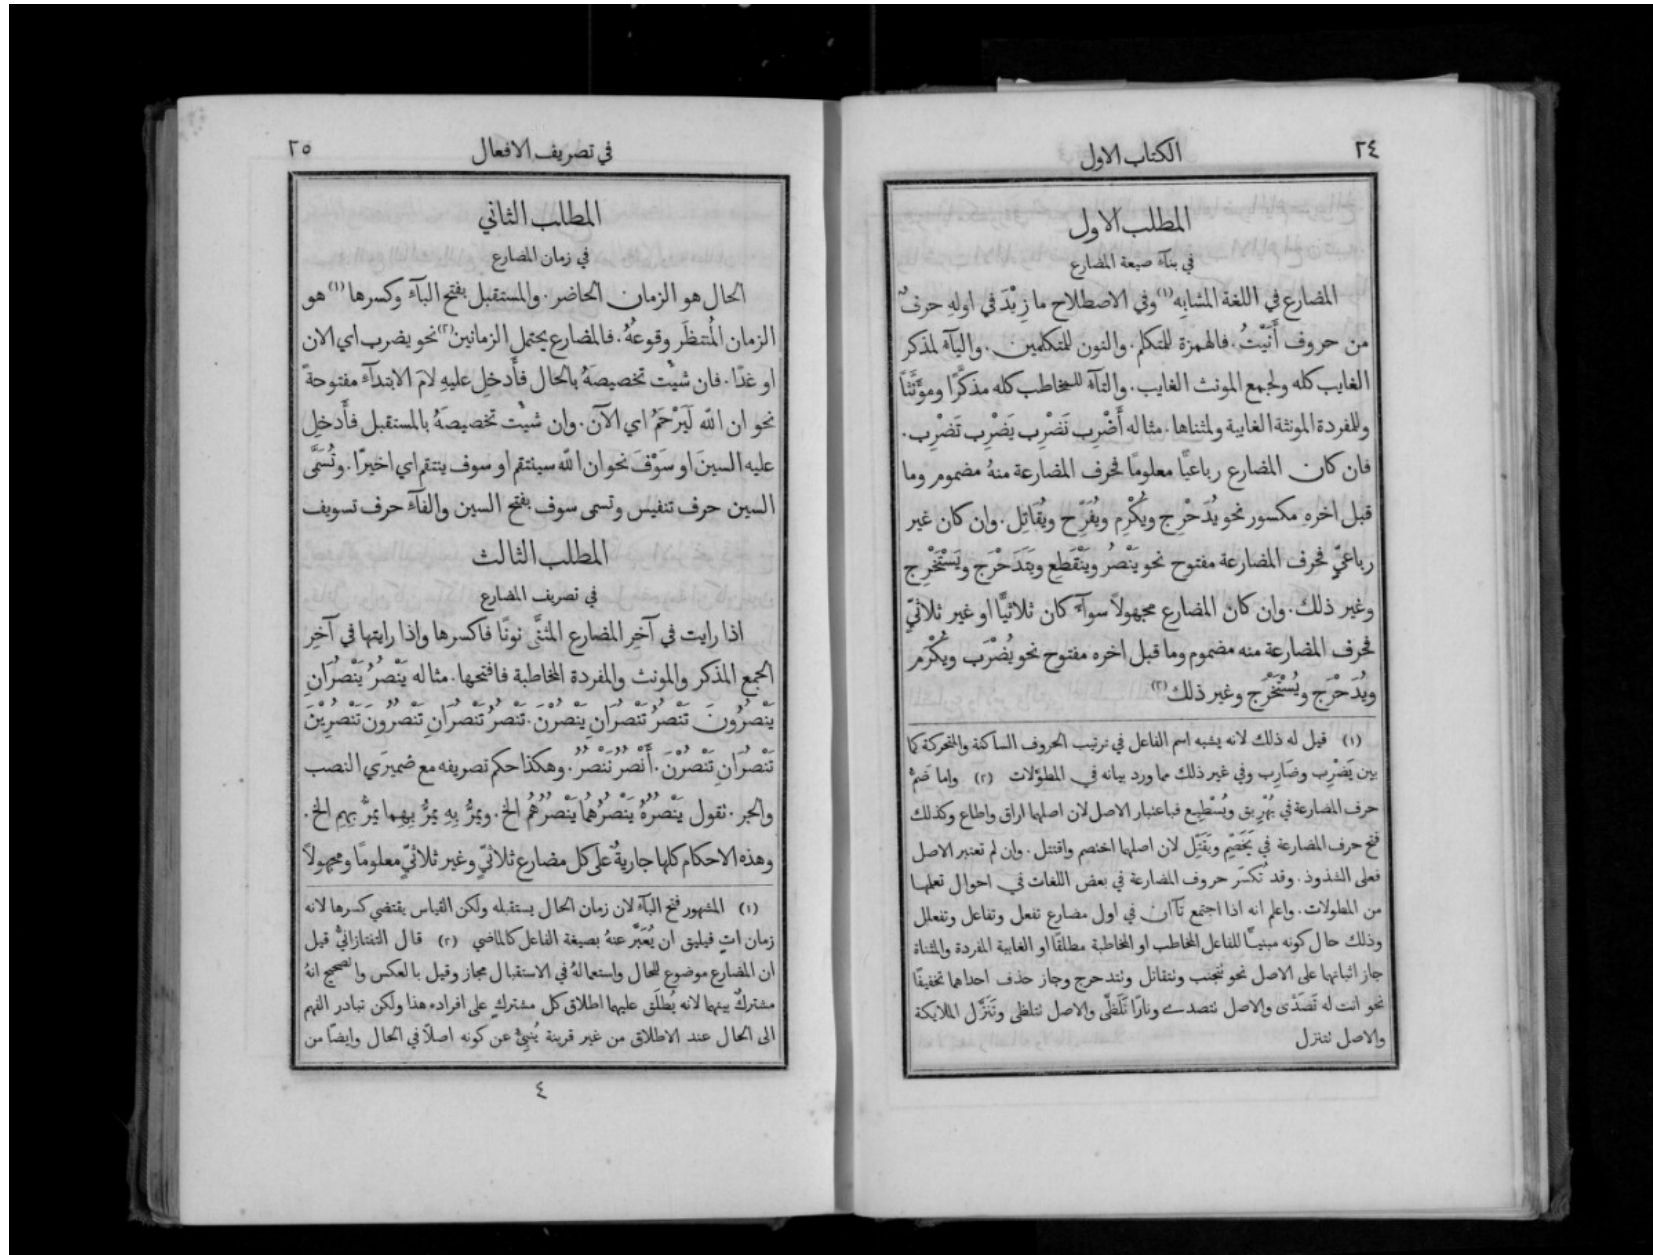 ٢٤
الكتاب الاول
المطلب الاول
في بنآء صيغة المضارع
المضارع في اللغة المشابِه(١) وفي الاصطلاح ما زِيْدَ في اولهِ حرفٌ
من حروف أَنَيْتُ. فالهمزة للمتكلم. والنون للمتكلمين. واليآء لمذكر
الغايب كله ولجمع المونث الغايب. والتآء للمخاطب كله مذكَّرًا ومؤَنَّثًا
وللفردة المونثة الغايبة ولمثناها. مثاله أَضْرِب نَضْرِب يَضْرِب تَضْرِب.
فان كان المضارع رباعيًّا معلومًا فحرف المضارعة منهُ مضموم وما
قبل اخرهِ مكسور نحو يُدَحْرِج ويُكْرِم ويُفَرِّح ويُقَاتِل. وان كان غير
رباعيٍّ فحرف المضارعة مفتوح نحو يَنْصُر ويَنْقَطِع ويَتَدَحْرَج ويَسْتَخْرِج
وغير ذلك. وان كان المضارع مجهولاً سوآء كان ثلاثيًّا او غير ثلاثيٍّ
فحرف المضارعة منه مضموم وما قبل اخره مفتوح نحو يُضْرَب ويُكْرَم
ويُدَحْرَج ويُسْتَخْرَج وغير ذلك(٢)
(١) قيل له ذلك لانه يشبه اسم الفاعل في ترتيب الحروف الساكنة والمتحركة كما
بين يَضْرِب وضَارِب وفي غير ذلك مما ورد بيانه في المطوّلات (٢) واما ضمُّ
حرف المضارعة في يُهْرِيق ويُسْطِيع فباعتبار الاصل لان اصلهما اراق واطاع وكذلك
فتح حرف المضارعة في يَخَصِّم ويَقَتِّل لان اصلهما اختصم واقتتل. وان لم تعتبر الاصل
فعلى الشذوذ. وقد تُكسَر حروف المضارعة في بعض اللغات في احوال تعلمها
من المطولات. واعلم انه اذا اجتمع تآان في اول مضارع تفعل وتفاعل وتفعلل
وذلك حال كونه مبنيًّا للفاعل المخاطب او المخاطبة مطلقًا او الغايبة المفردة والمثناة
جاز اثباتهما على الاصل نحو تتجنب وتتقاتل وتتدحرج وجاز حذف احداهما تخفيفًا
نحو انت له تَصَدَّى والاصل تتصدى ونارًا تَلَظَّى والاصل تتلظى وتَنَزَّل الملايكة
والاصل تتنزل
في تصريف الافعال
٢٥
المطلب الثاني
في زمان المضارع
الحال هو الزمان الحاضر. والمستقبل بفتح البآء وكسرها(١) هو
الزمان المُنتظَر وقوعهُ. فالمضارع يحتمل الزمانين(٢) نحو يضرب اي الان
او غدًا. فان شيْت تخصيصهُ بالحال فأَدخِل عليهِ لامَ الابتدآء مفتوحةً
نحو ان اللّه لَيَرْحَمُ اي الآن. وان شيْت تخصيصهُ بالمستقبل فأَدخِل
عليه السينَ او سَوْفَ نحو ان اللّه سينتقم او سوف ينتقم اي اخيرًا. وتُسَمَّى
السين حرف تنفيس وتسمى سوف بفتح السين والفآء حرف تسويف
المطلب الثالث
في تصريف المضارع
اذا رايت في آخِر المضارع المثنَّى نونًا فاكسرها واذا رايتها في آخِر
الجمع المذكر والمونث والمفردة المخاطبة فافتحها. مثاله يَنْصُرُ يَنْصُرَانِ
يَنْصُرُونَ تَنْصُرُ تَنْصُرَانِ يَنْصُرْنَ. تَنْصُرُ تَنْصُرَانِ تَنْصُرُونَ تَنْصُرِيْنَ
تَنْصُرَانِ تَنْصُرْنَ. أَنْصُرُ نَنْصُرُ. وهكذا حكم تصريفه مع ضميرَي النصب
والجر. تقول يَنْصُرُهُ يَنْصُرُهُمَا يَنْصُرُهُمُ الخ. ويمرُّ بِهِ يمرُّ بِهِما يمرُّ بِهِم الخ.
وهذه الاحكام كلها جاريةٌ على كل مضارع ثلاثيٍّ وغير ثلاثيٍّ معلومًا ومجهولاً
(١) المشهور فتح البآء لان زمان الحال يستقبله ولكن القياس يقتضي كسرها لانه
زمان اتٍ فيليق ان يُعَبَّر عنهُ بصيغة الفاعل كالماضي (٢) قال التفتازانيُّ قيل
ان المضارع موضوع للحال واستعمالهُ في الاستقبال مجاز وقيل بالعكس والصحيح انهُ
مشتركٌ بينهما لانه يُطلَق عليهما اطلاق كل مشتركٍ على افراده هذا ولكن تبادر الفهم
الى الحال عند الاطلاق من غير قرينة يُنبِئُ عن كونه اصلاً في الحال وايضًا من
٤